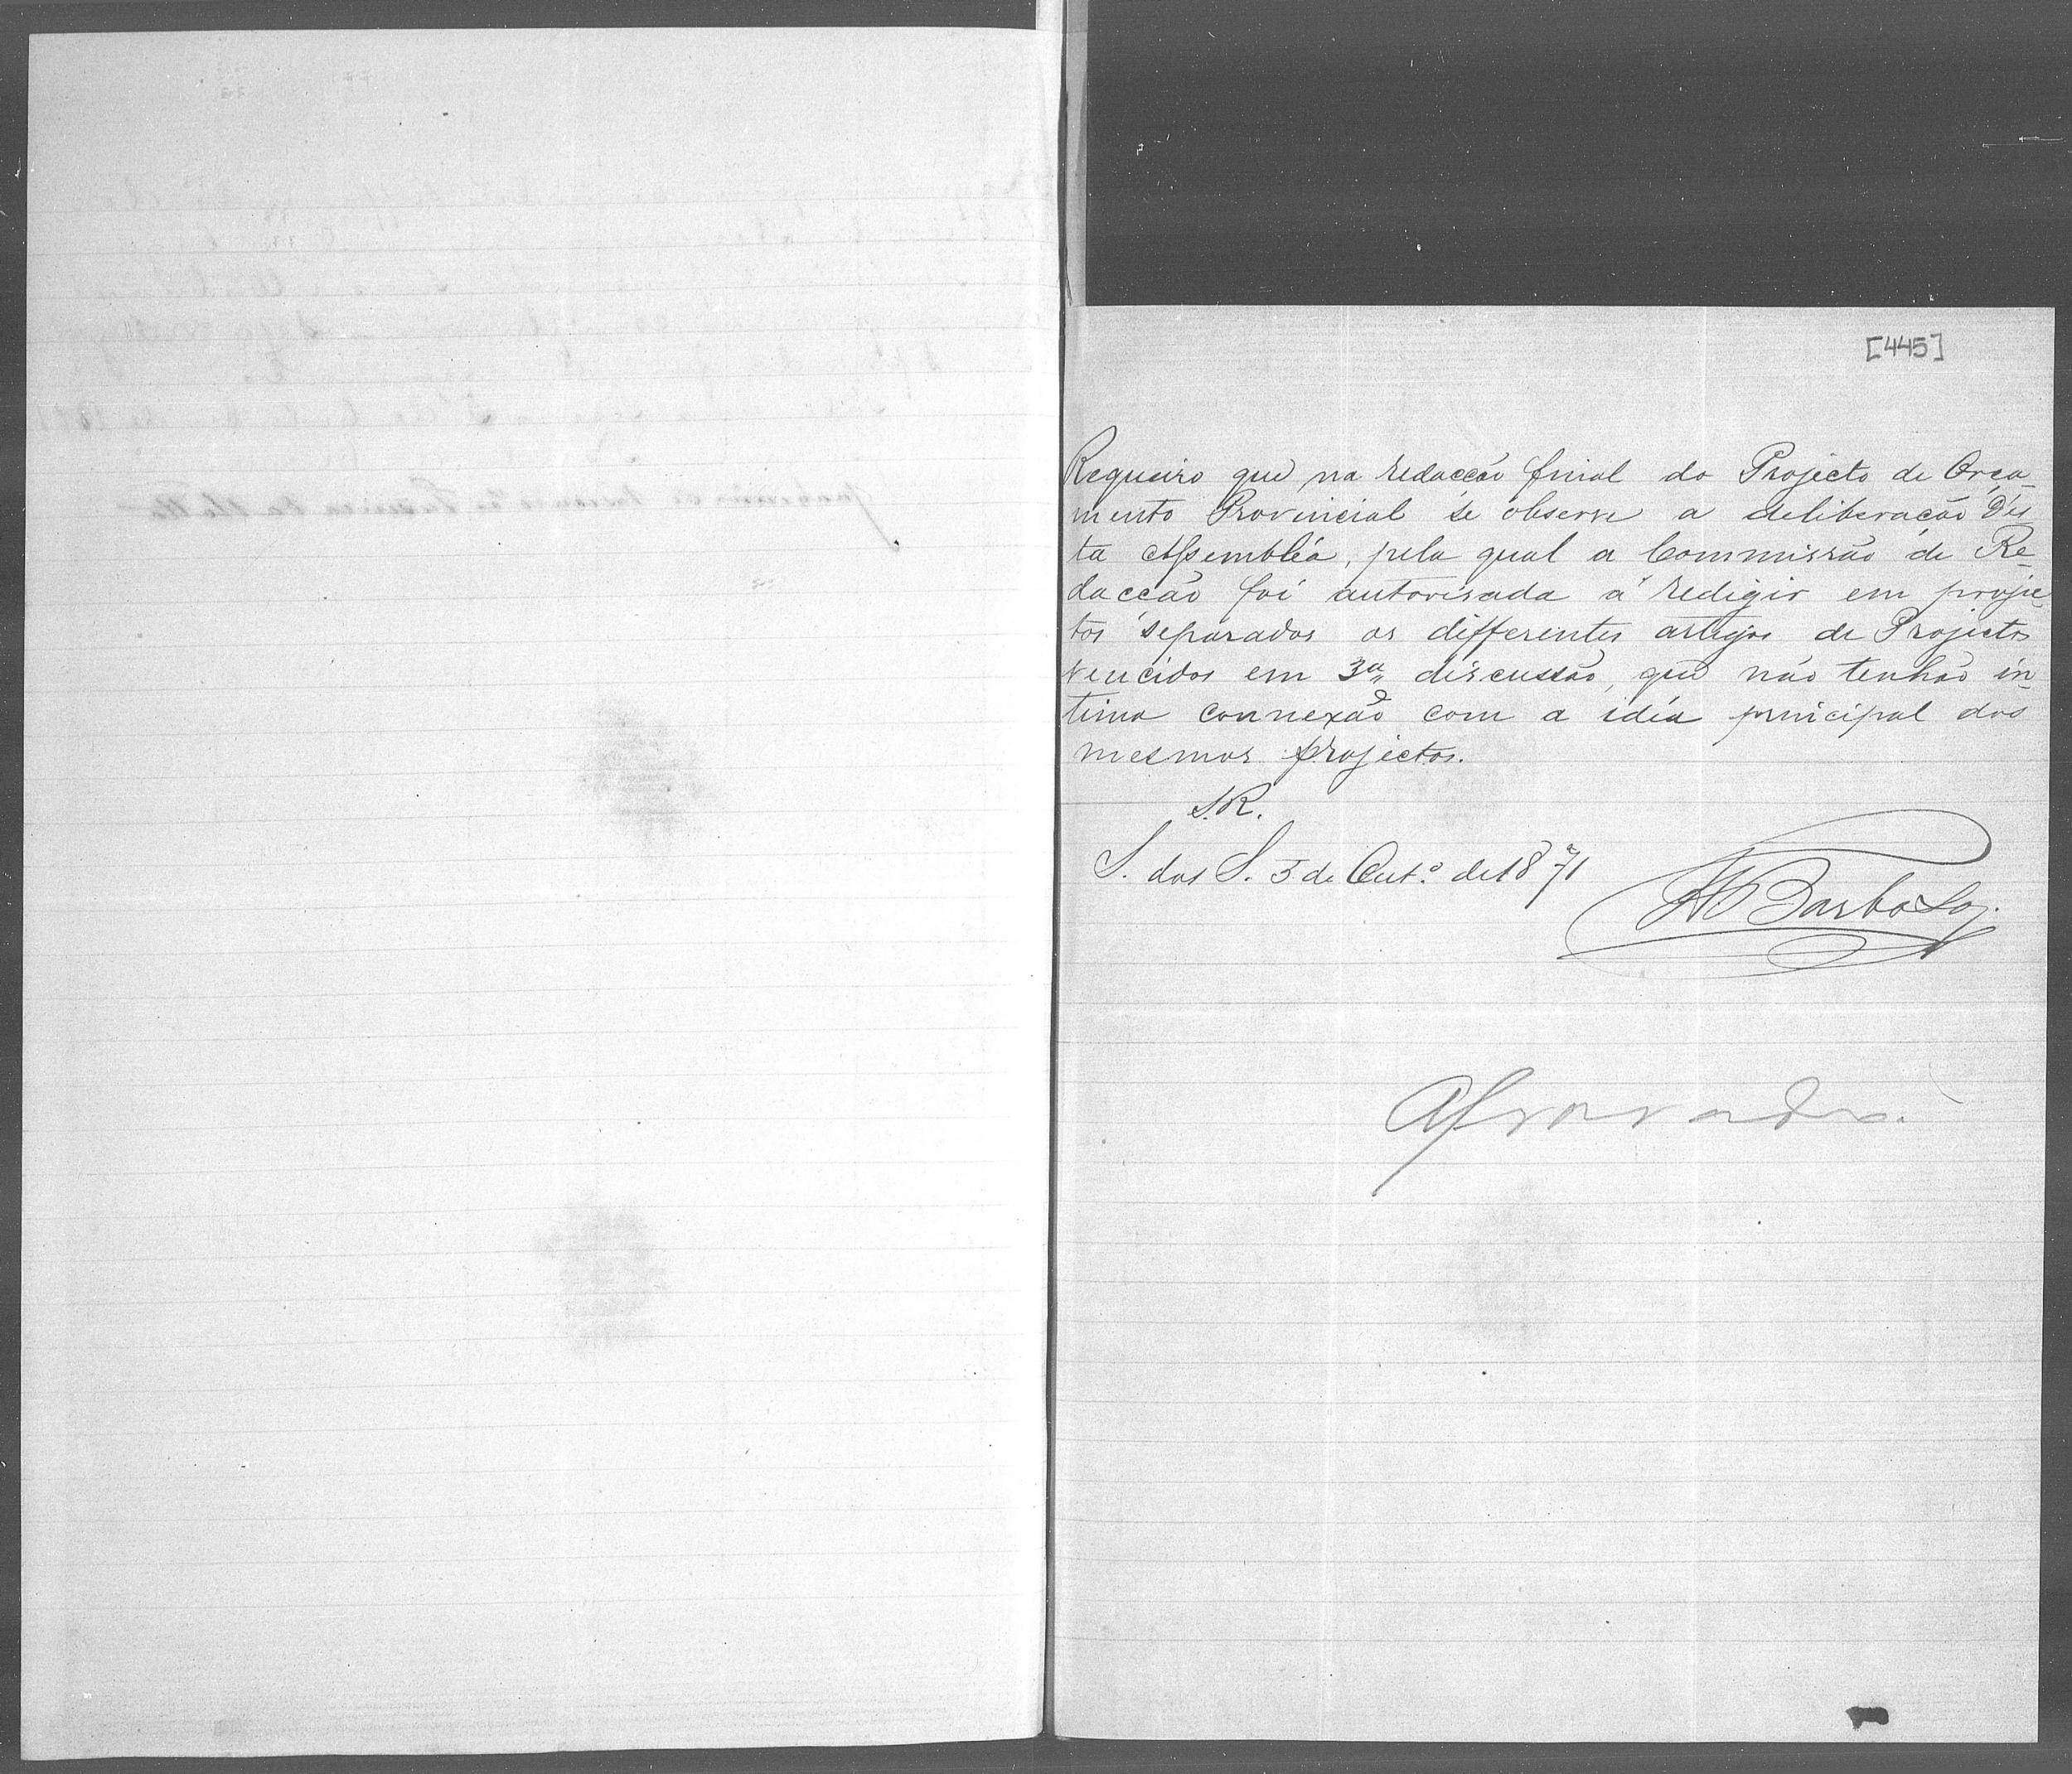 [445]
Requeiro que na redacção final do Projecto de Orça-
mento Provincial se observe a deliberação Des
ta Assembléa, pela qual a Commissão de Re-
dacção foi autorisada a redigir em proje-
tos separados os differentes artigos de Projectos
vencidos em 3ª discussão, que não tenhão in-
tima connexão com a idéa principal dos
mesmos projectos.
S.R.
S. das S. 3 de Outº de 1871
Barbosa
Approvado.